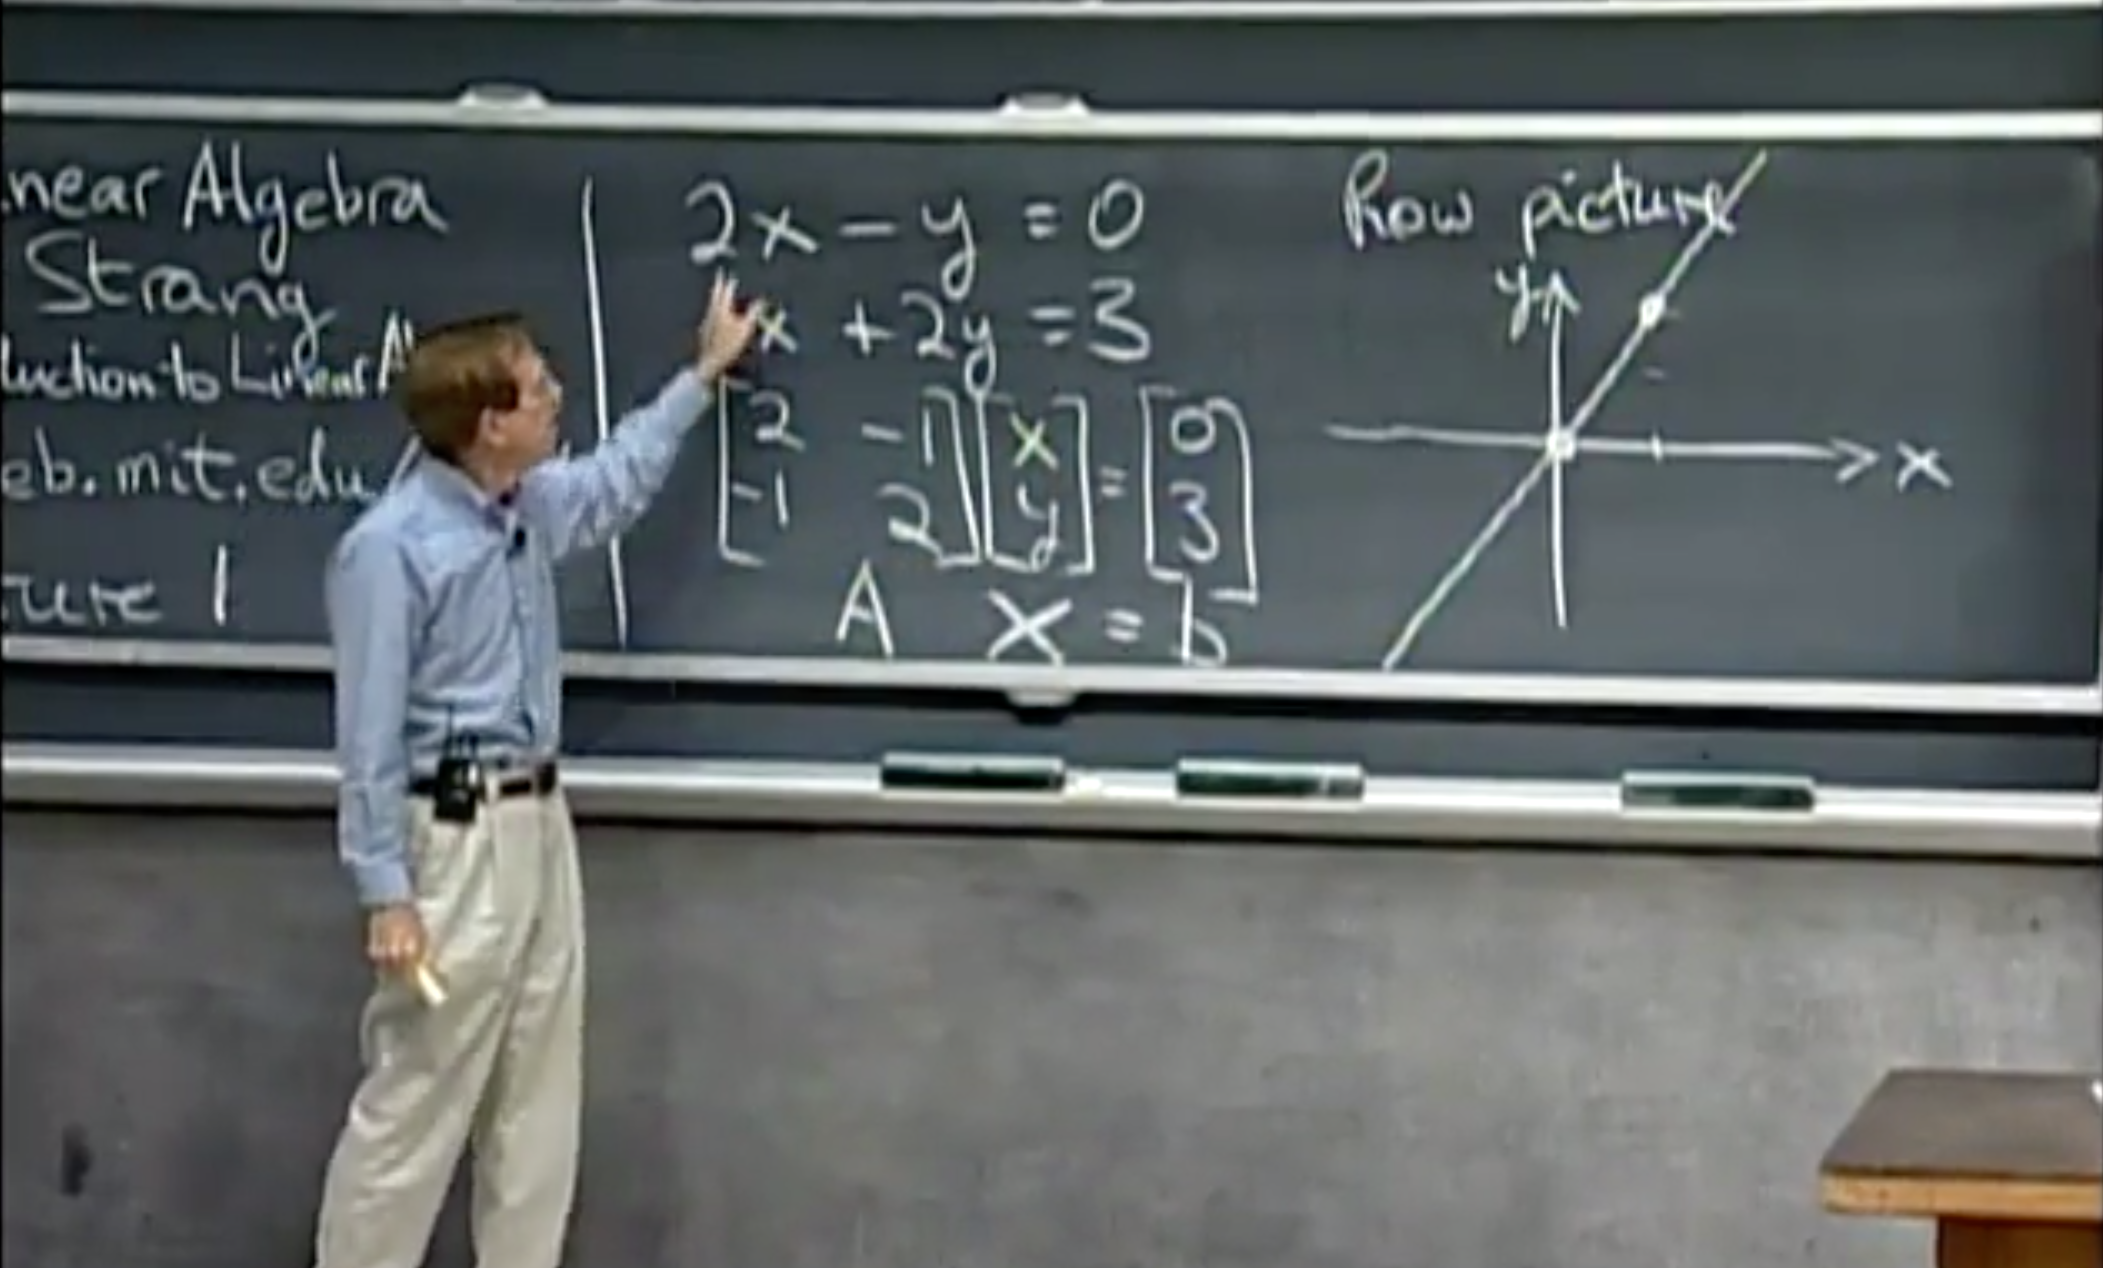 near Algebra
Strang
duction to Linear Al
eb.mit.edu/
ture 1
2x - y = 0
x + 2y = 3
[2 -1] [x] = [0]
[-1 2] [y] [3]
A X = b
Row picture
y
x